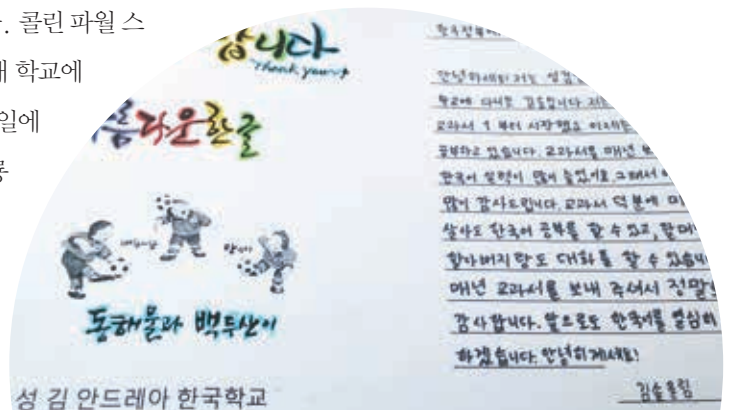 콜린 파월 스
학교에
일에
합니다
Thank you
름다운한글
동해물과 백두산이
성 김 안드레아 한국학교
안녕하세요! 저는 성김
학교에 다니는 김솔
교과서 1 부터 시작했고 이제는
공부하고 있습니다. 교과서를 매년
한국어 실력이 많이 늘었어요. 그래서
많이 감사드립니다. 교과서 덕분에 미
살아도 한국어 공부를 할 수 있고, 할머
할아버지랑도 대화를 할 수 있습니
매년 교과서를 보내 주셔서 정말
감사합니다. 앞으로도 한국어를 열심히
하겠습니다. 안녕히계세요!